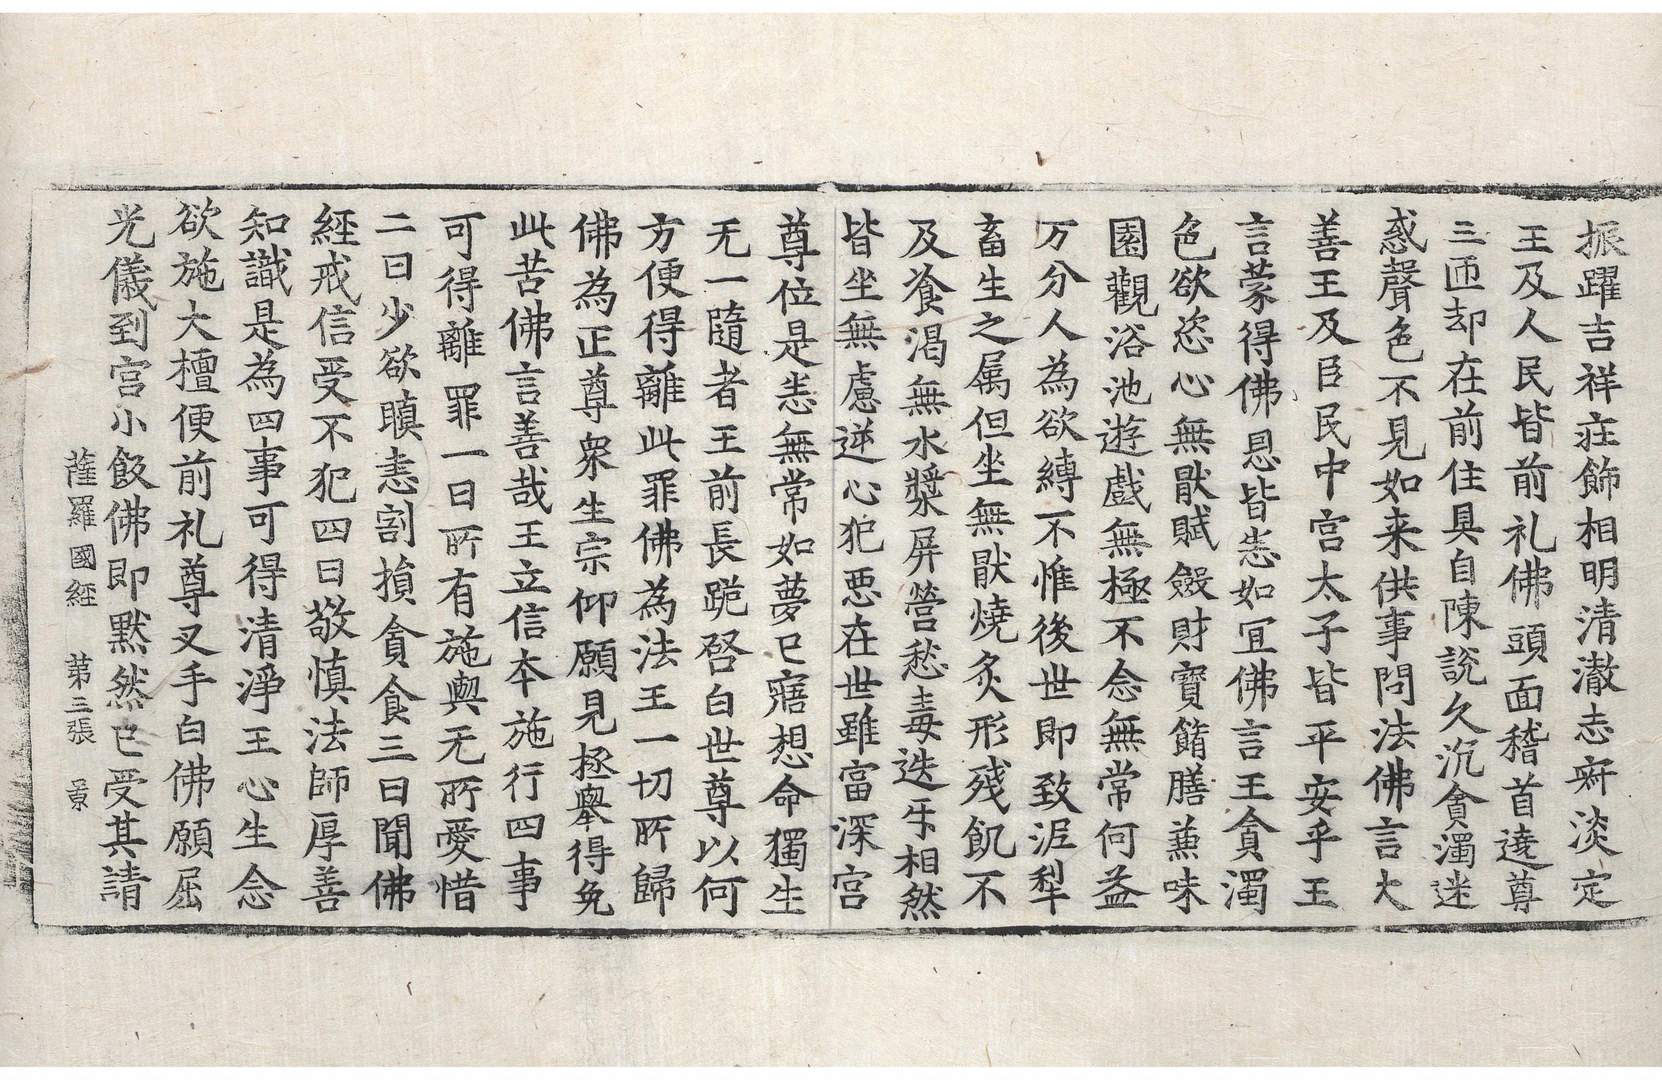 振躍吉祥莊飾相明清澈志寂淡定
王及人民皆前礼佛頭面稽首遶尊
三匝却在前住具自陳說久沉貪濁迷
惑聲色不見如来供事問法佛言大
善王及臣民中宫太子皆平安乎王
言蒙得佛恩皆悉如冝佛言王貪濁
色欲恣心無猒賦斂財寳餚膳兼味
園觀浴池遊戲無極不念無常何益
万分人為欲縛不惟後世即致泥犁
畜生之属但坐無猒燒炙形残飢不
及飡渇無水漿屏營愁毒迭乐相然
皆坐無慮逆心犯惡在世雖富深宫
尊位是悉無常如夢已寤想命獨生
无一隨者王前長跪啓白世尊以何
方便得離此罪佛為法王一切所歸
佛為正尊衆生宗仰願見拯舉得免
此苦佛言善哉王立信本施行四事
可得離罪一曰所有施與无所愛惜
二曰少欲瞋恚割損貪食三曰聞佛
經戒信受不犯四曰敬慎法師厚善
知識是為四事可得清淨王心生念
欲施大檀便前礼尊叉手白佛願屈
光儀到宫小飯佛即黙然已受其請
薩羅國經　第三張　景